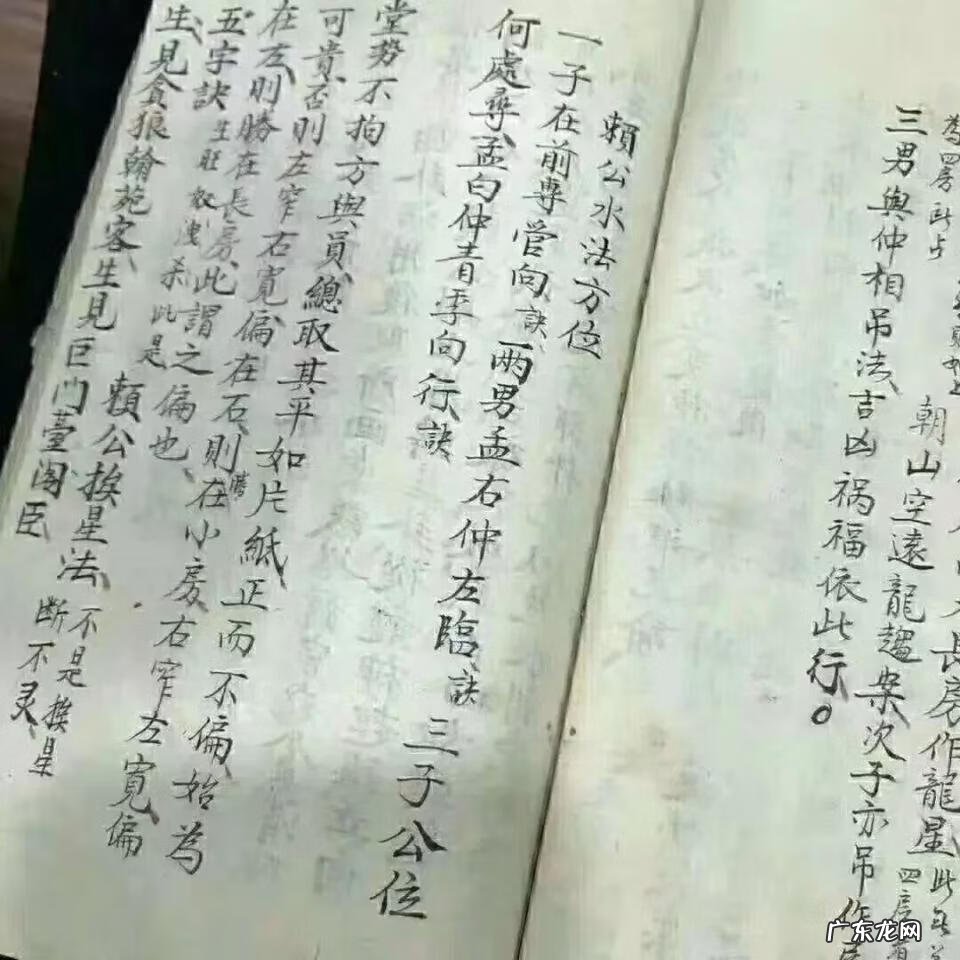 長房作龍星此
朝山空遠龍趨案次子亦吊作
為四房此占
三男與仲相吊法吉凶祸福依此行。
賴公水法方位
一子在前專管向訣两男孟右仲左臨訣三子公位
何處尋孟白仲青季向行訣
堂势不拍方與員總取其平如片紙正而不偏始為
可貴否則左窄右寬偏在石則勝在小房右窄左寬偏
在左則勝在長房此謂之偏也
五字訣生旺奴洩杀此是賴公挨星法不是挨星断不灵
生見貪狼翰苑客生見巨门臺阁臣
广东龙网